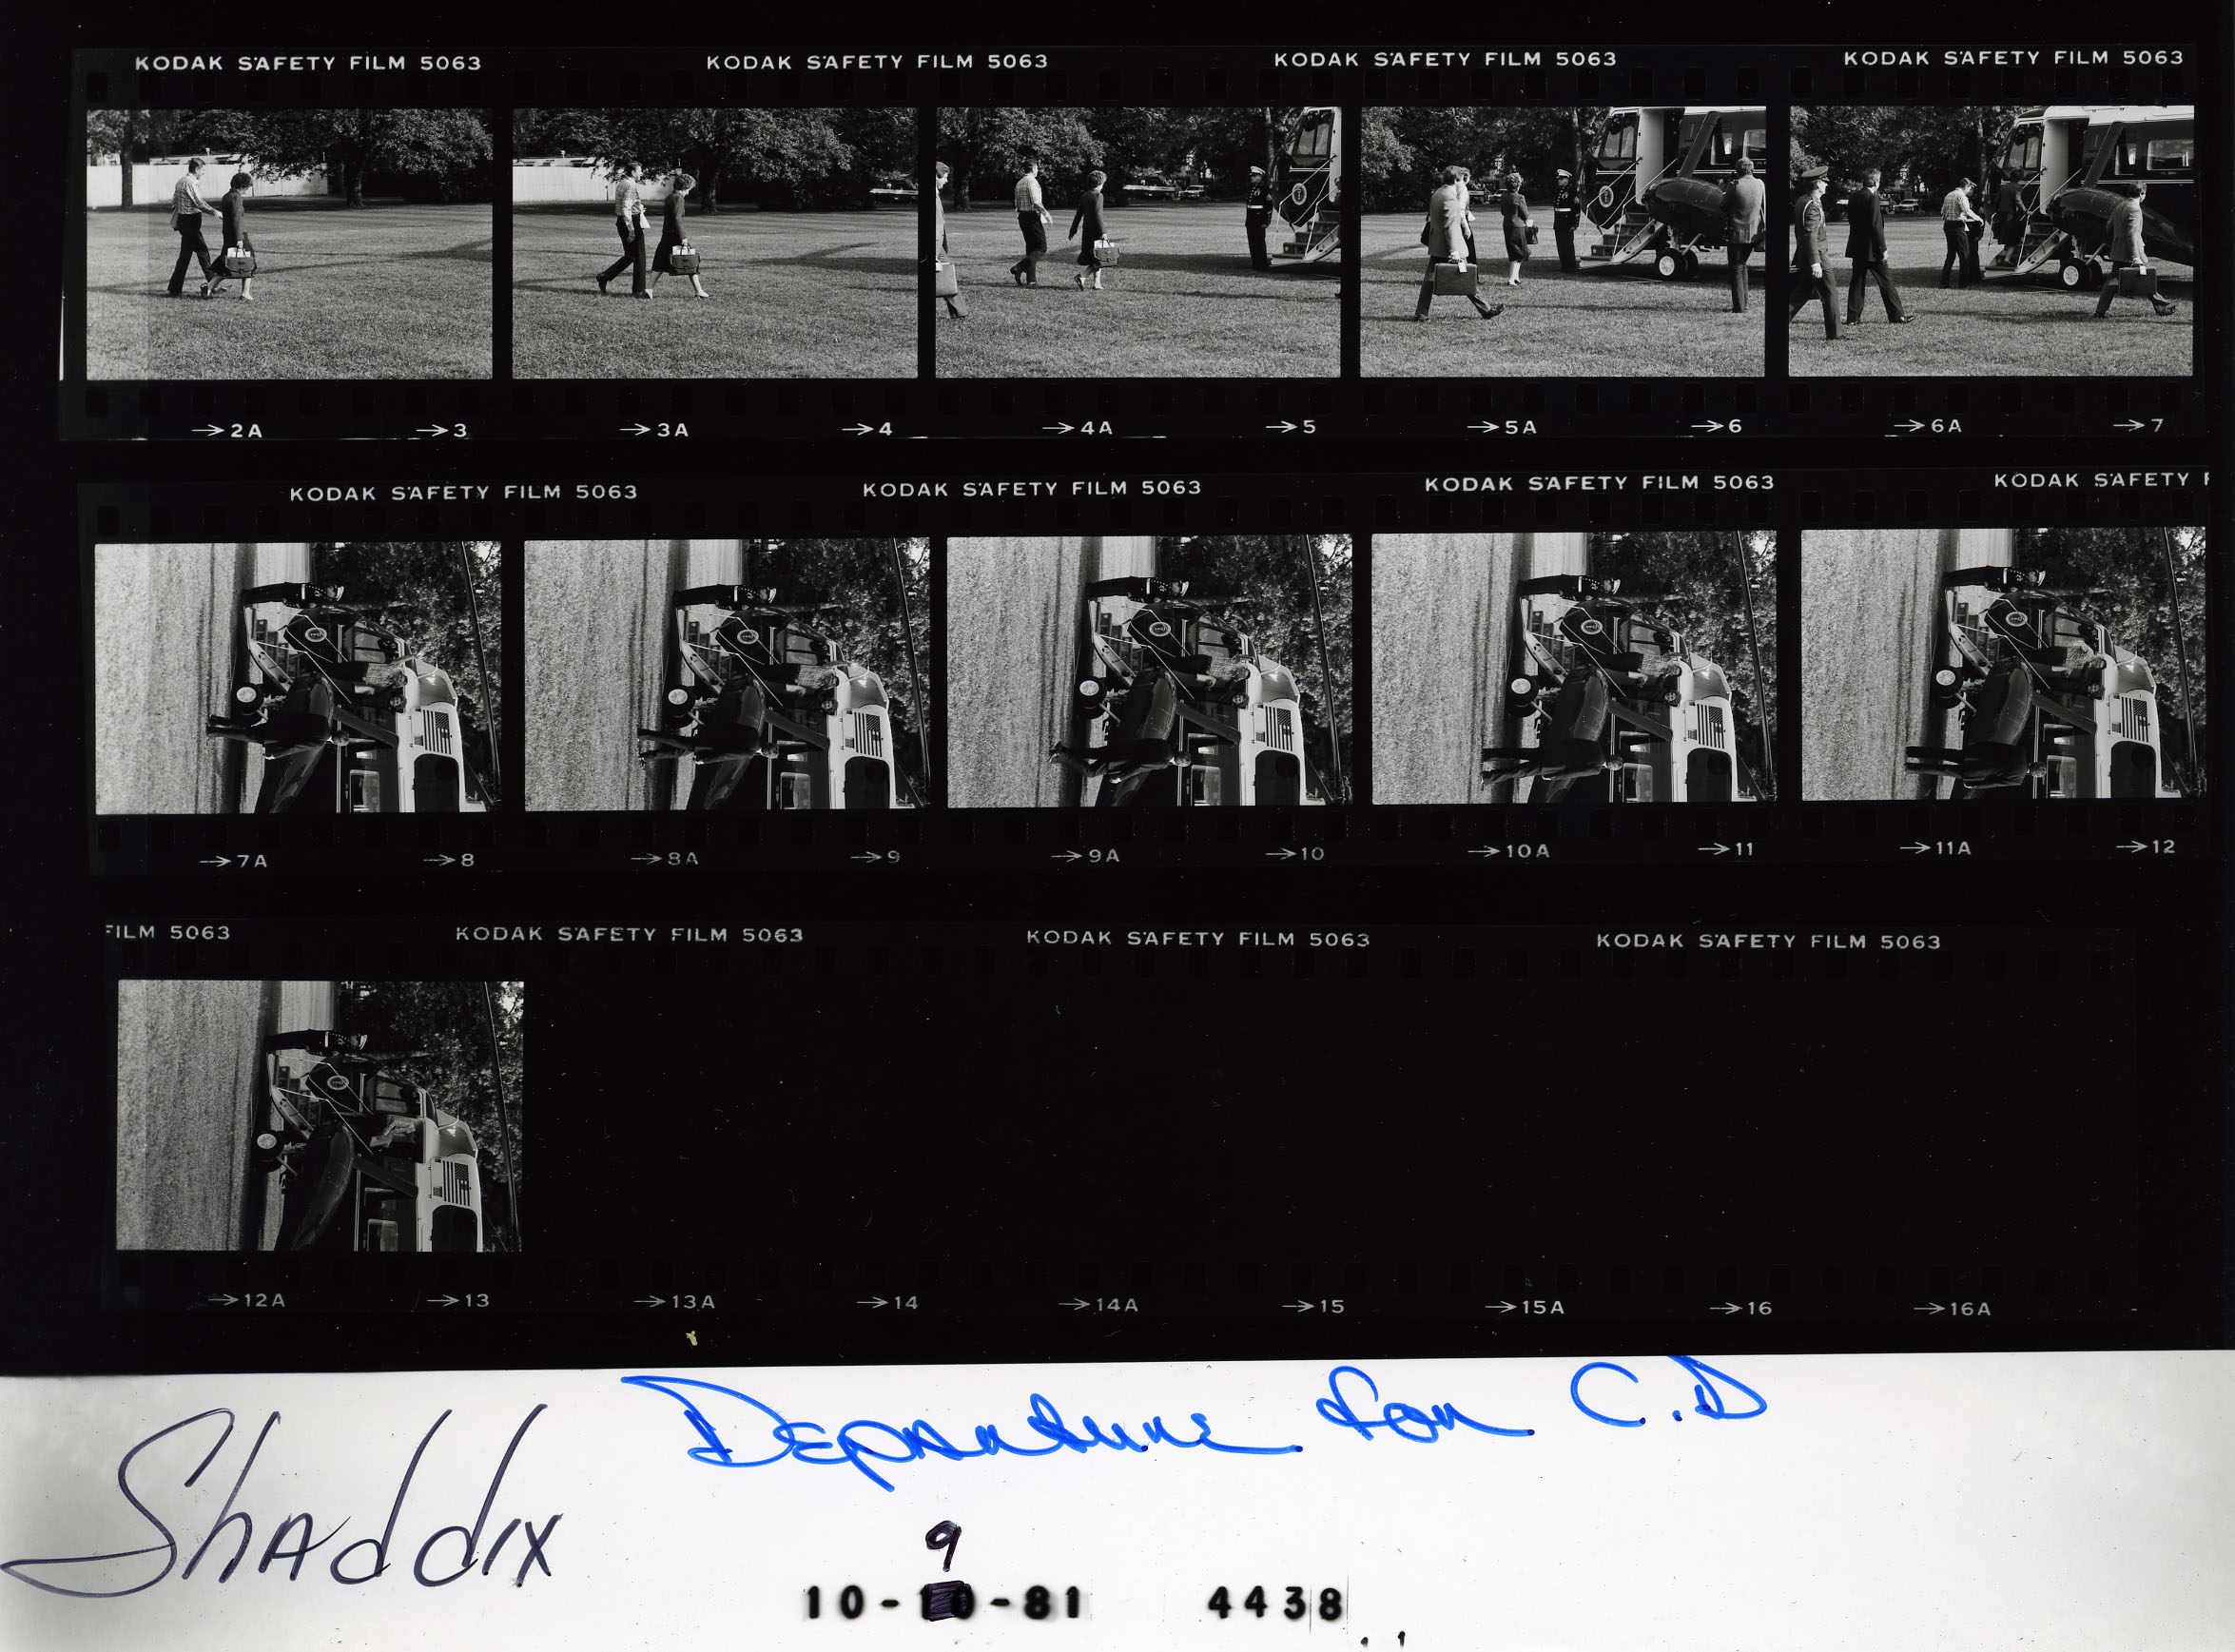 KODAK SAFETY FILM 5063 KODAK SAFETY FILM 5063 KODAK SAFETY FILM 5063 KODAK SAFETY FILM 5063
→2A →3 →3A →4 →4A →5 →5A →6 →6A →7
KODAK SAFETY FILM 5063 KODAK SAFETY FILM 5063 KODAK SAFETY FILM 5063 KODAK SAFETY F
→7A →8 →8A →9 →9A →10 →10A →11 →11A →12
FILM 5063 KODAK SAFETY FILM 5063 KODAK SAFETY FILM 5063 KODAK SAFETY FILM 5063
→12A →13 →13A →14 →14A →15 →15A →16 →16A
Departure for C.D
Shaddix
9
10- -81 4438